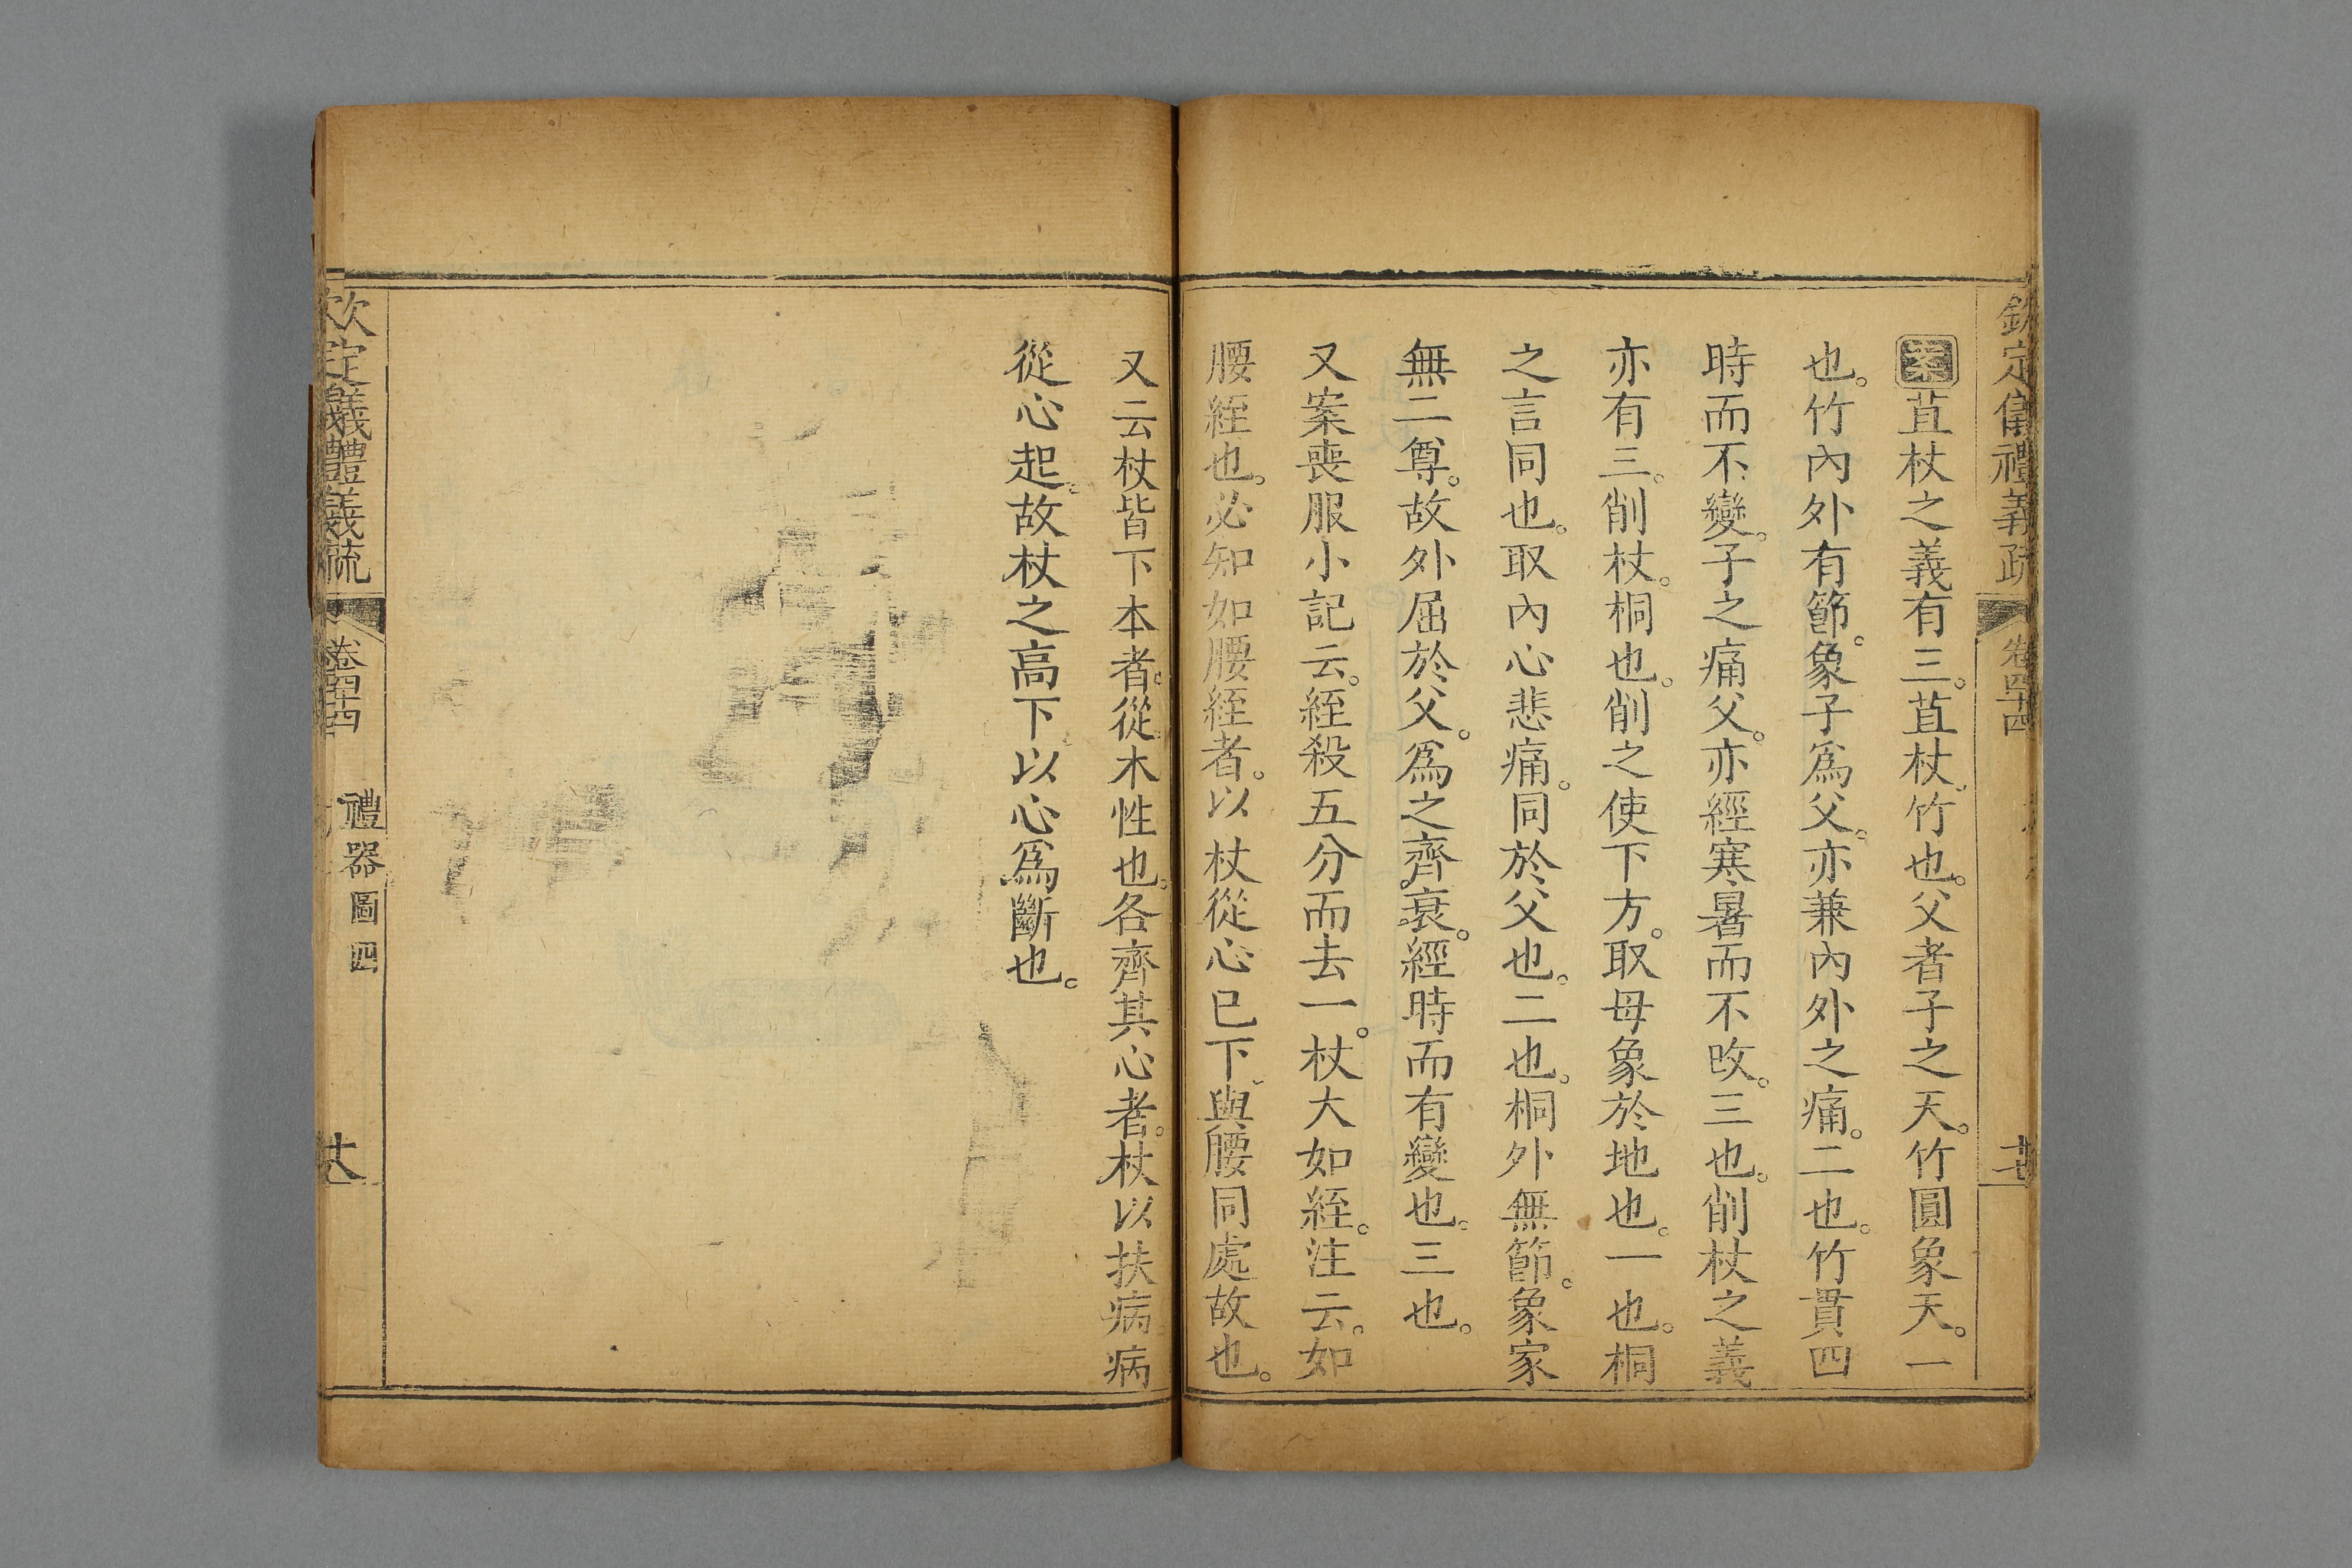 欽定儀禮義疏 卷四十四 十七
案苴杖之義有三。苴杖。竹也。父者子之天。竹圓象天。一
也。竹內外有節。象子爲父。亦兼內外之痛。二也。竹貫四
時而不變。子之痛父。亦經寒暑而不改。三也。削杖之義
亦有三。削杖。桐也。削之使下方。取母象於地也。一也。桐
之言同也。取內心悲痛。同於父也。二也。桐外無節。象家
無二尊。故外屈於父。爲之齊。衰。經時而有變也。三也。
又案喪服小記云。絰殺五分而去一。杖大如絰。注云。如
腰絰也。必知如腰絰者。以杖從心已下。與腰同處故也。
又云杖皆下本者。從木性也。各齊其心者。杖以扶病。病
從心起。故杖之高下以心爲斷也。
欽定義禮義疏 卷四十四 禮器圖四 十八